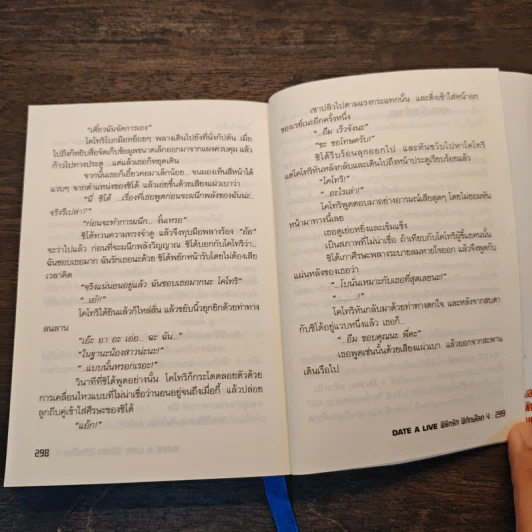 "เดี๋ยวฉันจัดการเอง"
โคโทริโบกมือหยอยๆ พลางเดินไปยังที่นั่งกัปตัน เมื่อ
ไปถึงก็หยิบสื่อจัดเก็บข้อมูลขนาดเล็กออกมาจากแผงควบคุม แล้ว
ก้าวไปทางประตู แต่แล้วเธอก็หยุดเดิน
จากนั้นเธอก็เอี้ยวคอมาเล็กน้อย จนมองเห็นสีหน้าได้
แวบๆ จากตำแหน่งของชิโด้ แล้วเอ่ยขึ้นด้วยเสียงแผ่วเบาว่า
"นี่ ชิโด้ ...เรื่องที่เธอพูดก่อนจะผนึกพลังของฉันน่ะ...
จริงรึเปล่า?"
"ก่อนจะทำการผนึก... งั้นเหรอ"
ชิโด้ทวนความทรงจำดู แล้วจึงทุบมือพลางร้อง "อ้อ"
จะว่าไปแล้ว ก่อนที่จะผนึกพลังวิญญาณ ชิโด้บอกกับโคโทริว่า...
ฉันชอบเธอมาก ฉันรักเธอนะด้วย ชิโด้พยักหน้ารับโดยไม่ต้องเสีย
เวลาคิด
"จริงแน่นอนอยู่แล้ว ฉันชอบเธอมากนะ โคโทริ"
"...เอ๋!!"
โคโทริได้ยินแล้วก็ไหล่สั่น แล้วขยับนิ้วยุกยิกด้วยท่าทาง
ลนลาน
"เอ๊ะ อา อะ เอ่อ... ฉะ ฉัน..."
"ในฐานะน้องสาวน่ะนะ!"
"...แบบนั้นหรอกเรอะ!"
วินาทีที่ชิโด้พูดอย่างนั้น โคโทริก็กระโดดลอยตัวด้วย
การเคลื่อนไหวแบบที่ไม่น่าเชื่อว่านอนอยู่จนถึงเมื่อกี้ แล้วปล่อย
ลูกถีบคู่เข้าใส่ศีรษะของชิโด้
"แอ้ก!"
298
เขาปลิวไปตามแรงกระแทกนั้น และดิ่งเข้าใส่หน้าอก
ของเรย์เนะอีกครั้งหนึ่ง
"...อืม เร็วจังนะ"
"ขะ ขอโทษครับ!"
ชิโด้รีบร้อนลุกออกไป และหันขวับไปหาโคโทริ
แต่โคโทริหันหลังกลับและเดินไปถึงหน้าประตูเรียบร้อยแล้ว
"โคโทริ!"
"...อะไรเล่า!"
โคโทริพูดตอบมาอย่างอารมณ์เสียสุดๆ โดยไม่ยอมหัน
หน้ามาทางนี้เลย
เธอดูเย่อหยิ่งและเข้มแข็ง
เป็นสภาพที่ไม่น่าเชื่อ ถ้าเทียบกับโคโทริผู้ขี้แยคนนั้น
ชิโด้เกาศีรษะพลางระบายลมหายใจออก แล้วจึงพูดกับ
แผ่นหลังของเธอว่า
"...โบนั่นเหมาะกับเธอที่สุดเลยนะ!"
"..........!"
โคโทริหันกลับมาด้วยท่าทางตกใจ และหลังจากสบตา
กับชิโด้อยู่แวบหนึ่งแล้ว เธอก็...
"...อืม ขอบคุณนะ พี่คะ"
เธอพูดเช่นนั้นด้วยเสียงแผ่วเบา แล้วออกจากสะพาน
เดินเรือไป
DATE A LIVE พิชิตรัก พิทักษ์โลก 4 : 299